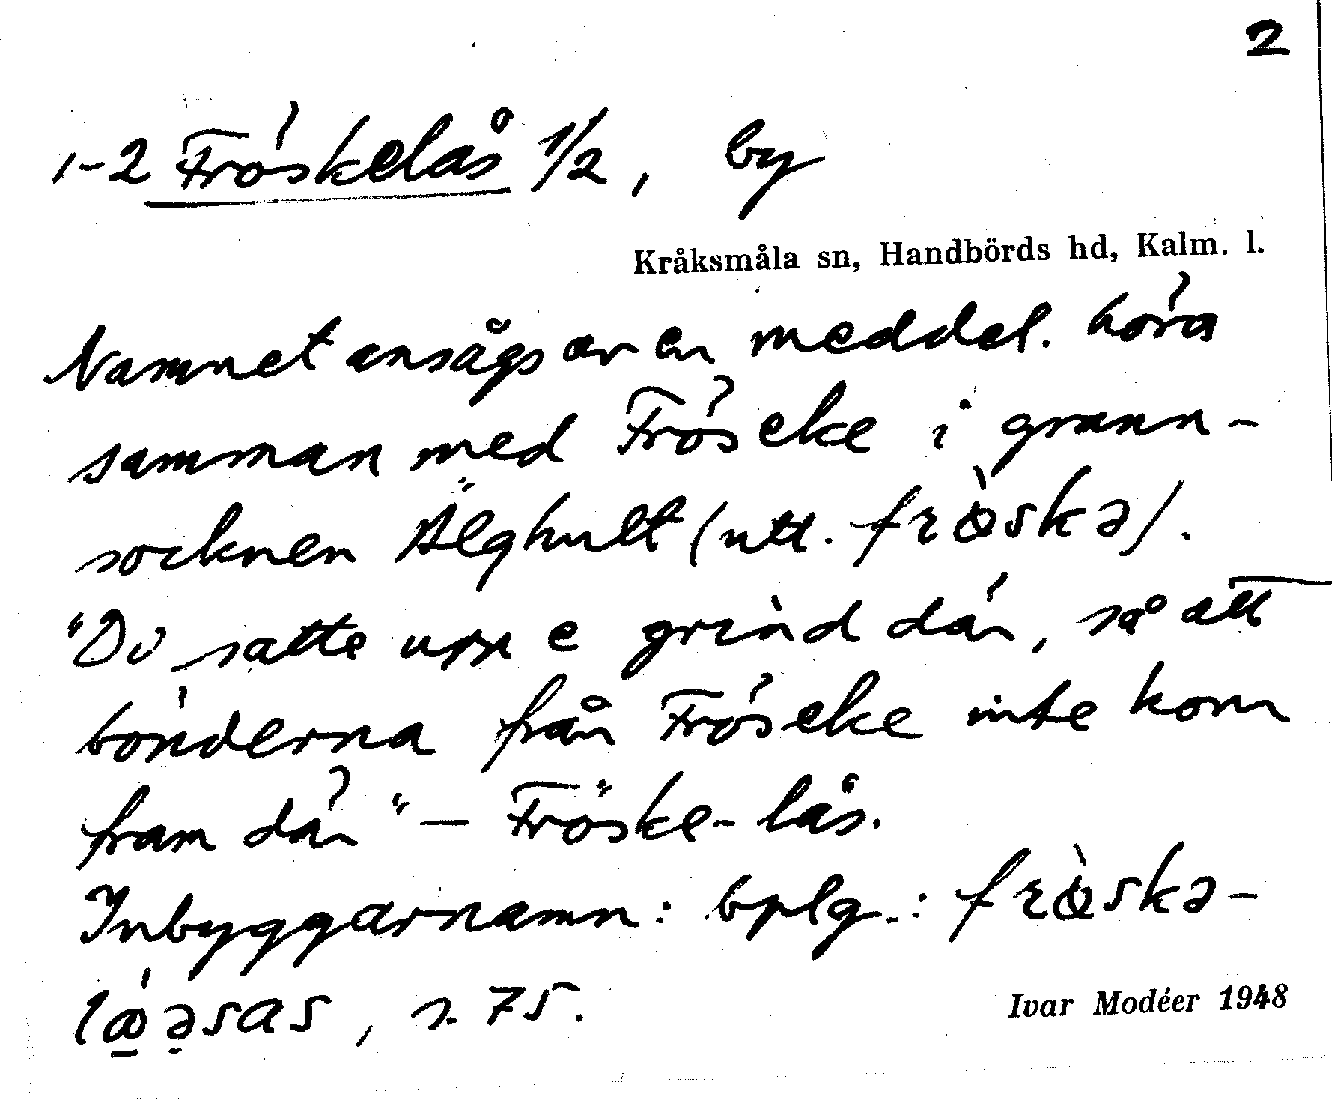 2
1-2 Fröskelås 1/2, by
Kråksmåla sn, Handbörds hd, Kalm. l.
Namnet ansågs av en meddel. höra
samman med Fröseke i grann-
socknen Älghult (utt. frø̀skə).
"Do satte upp e grind där, så att
bönderna från Fröseke inte kom
fram där" — Fröske-lås.
Inbyggarnamn: bplg.: frø̀skə-
lǻəsas, s. 75.
Ivar Modéer 1948